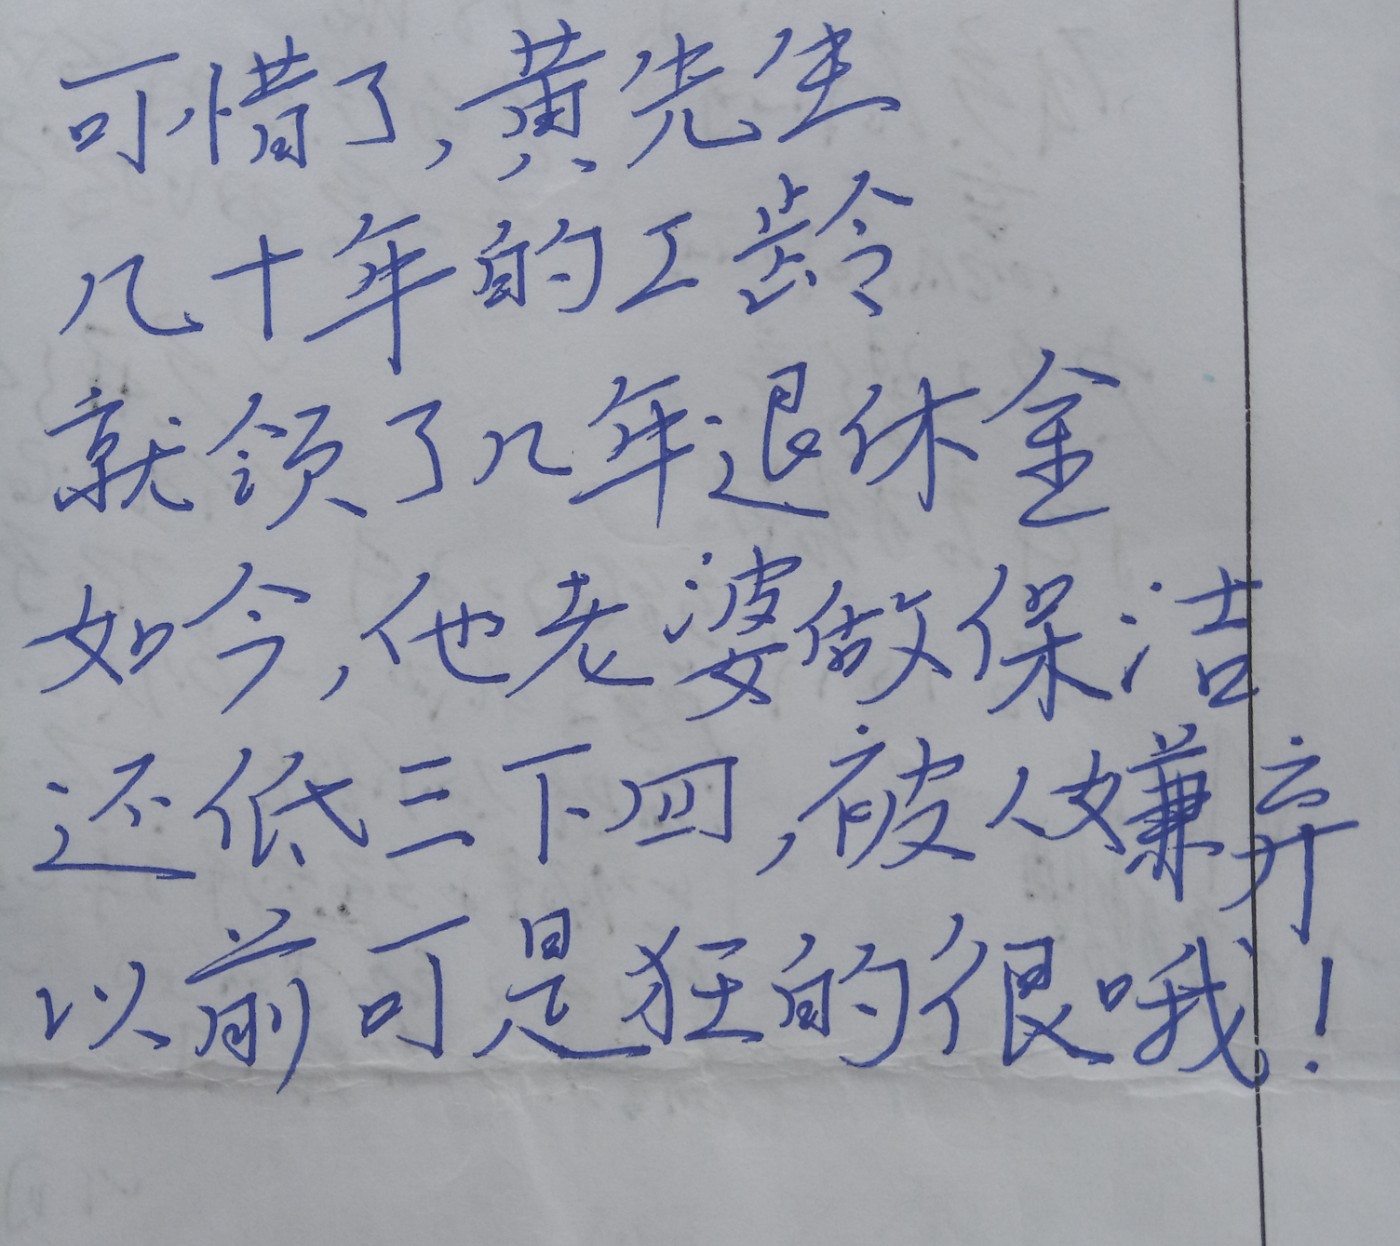 可惜了,黄先生
几十年的工龄
就领了几年退休金
如今,他老婆做保洁
还低三下四,被人嫌弃
以前可是狂的很哦!